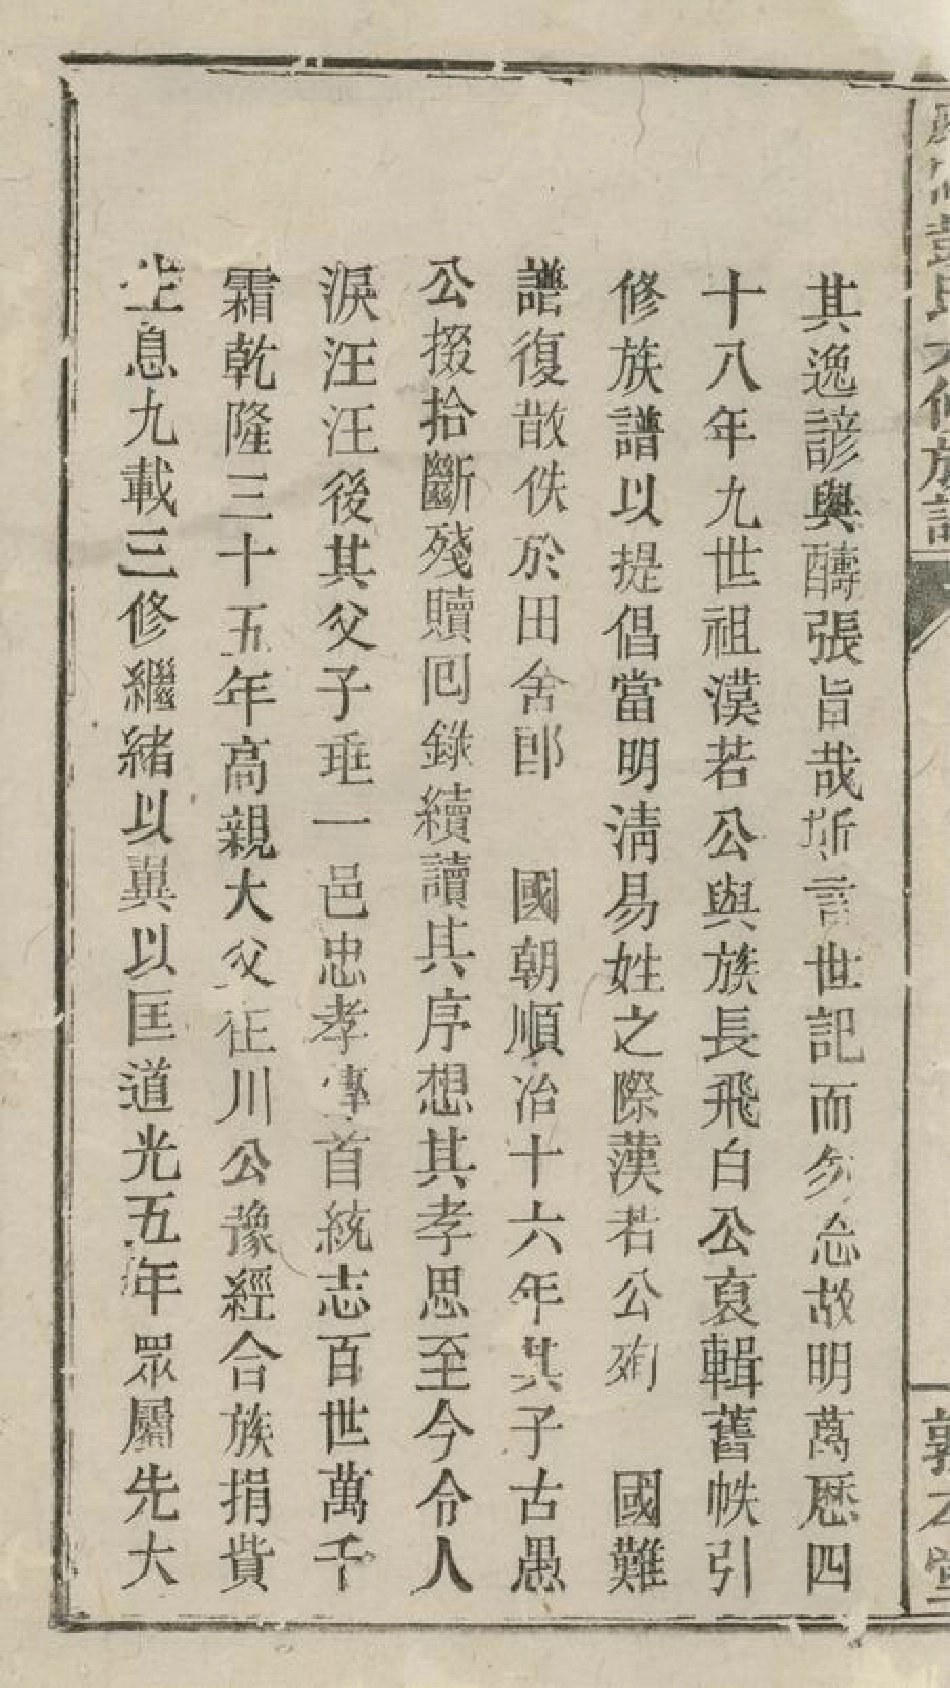 氏 修族譜
敦 堂
其逸諺與譸張旨哉斯言世記而勿忘故明萬厯四
十八年九世祖漢若公與族長飛白公裒輯舊帙引
修族譜以提倡當明淸易姓之際漢若公殉 國難
譜復散佚於田舍郎 國朝順治十六年其子古愚
公掇拾斷殘贖回錄續讀其序想其孝思至今令人
淚汪汪後其父子垂一邑忠孝傳首統志百世萬千
霜乾隆三十五年高親大父征川公豫經合族捐貲
生息九載三修繼緒以冀以匡道光五年眾屬先大